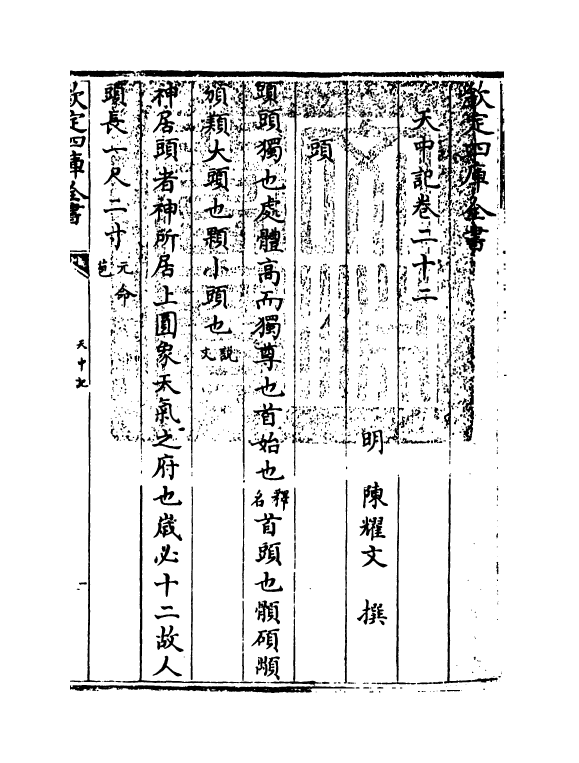 欽定四庫全書
天中記卷二十二
明 陳耀文 撰
頭
頭頭獨也處體高而獨尊也首始也釋名首頭也顝碩顒
頒類大頭也顆小頭也說文
神居頭者神所居上圓象天氣之府也歲必十二故人
頭長一尺二寸元命苞
欽定四庫全書
天中記
一